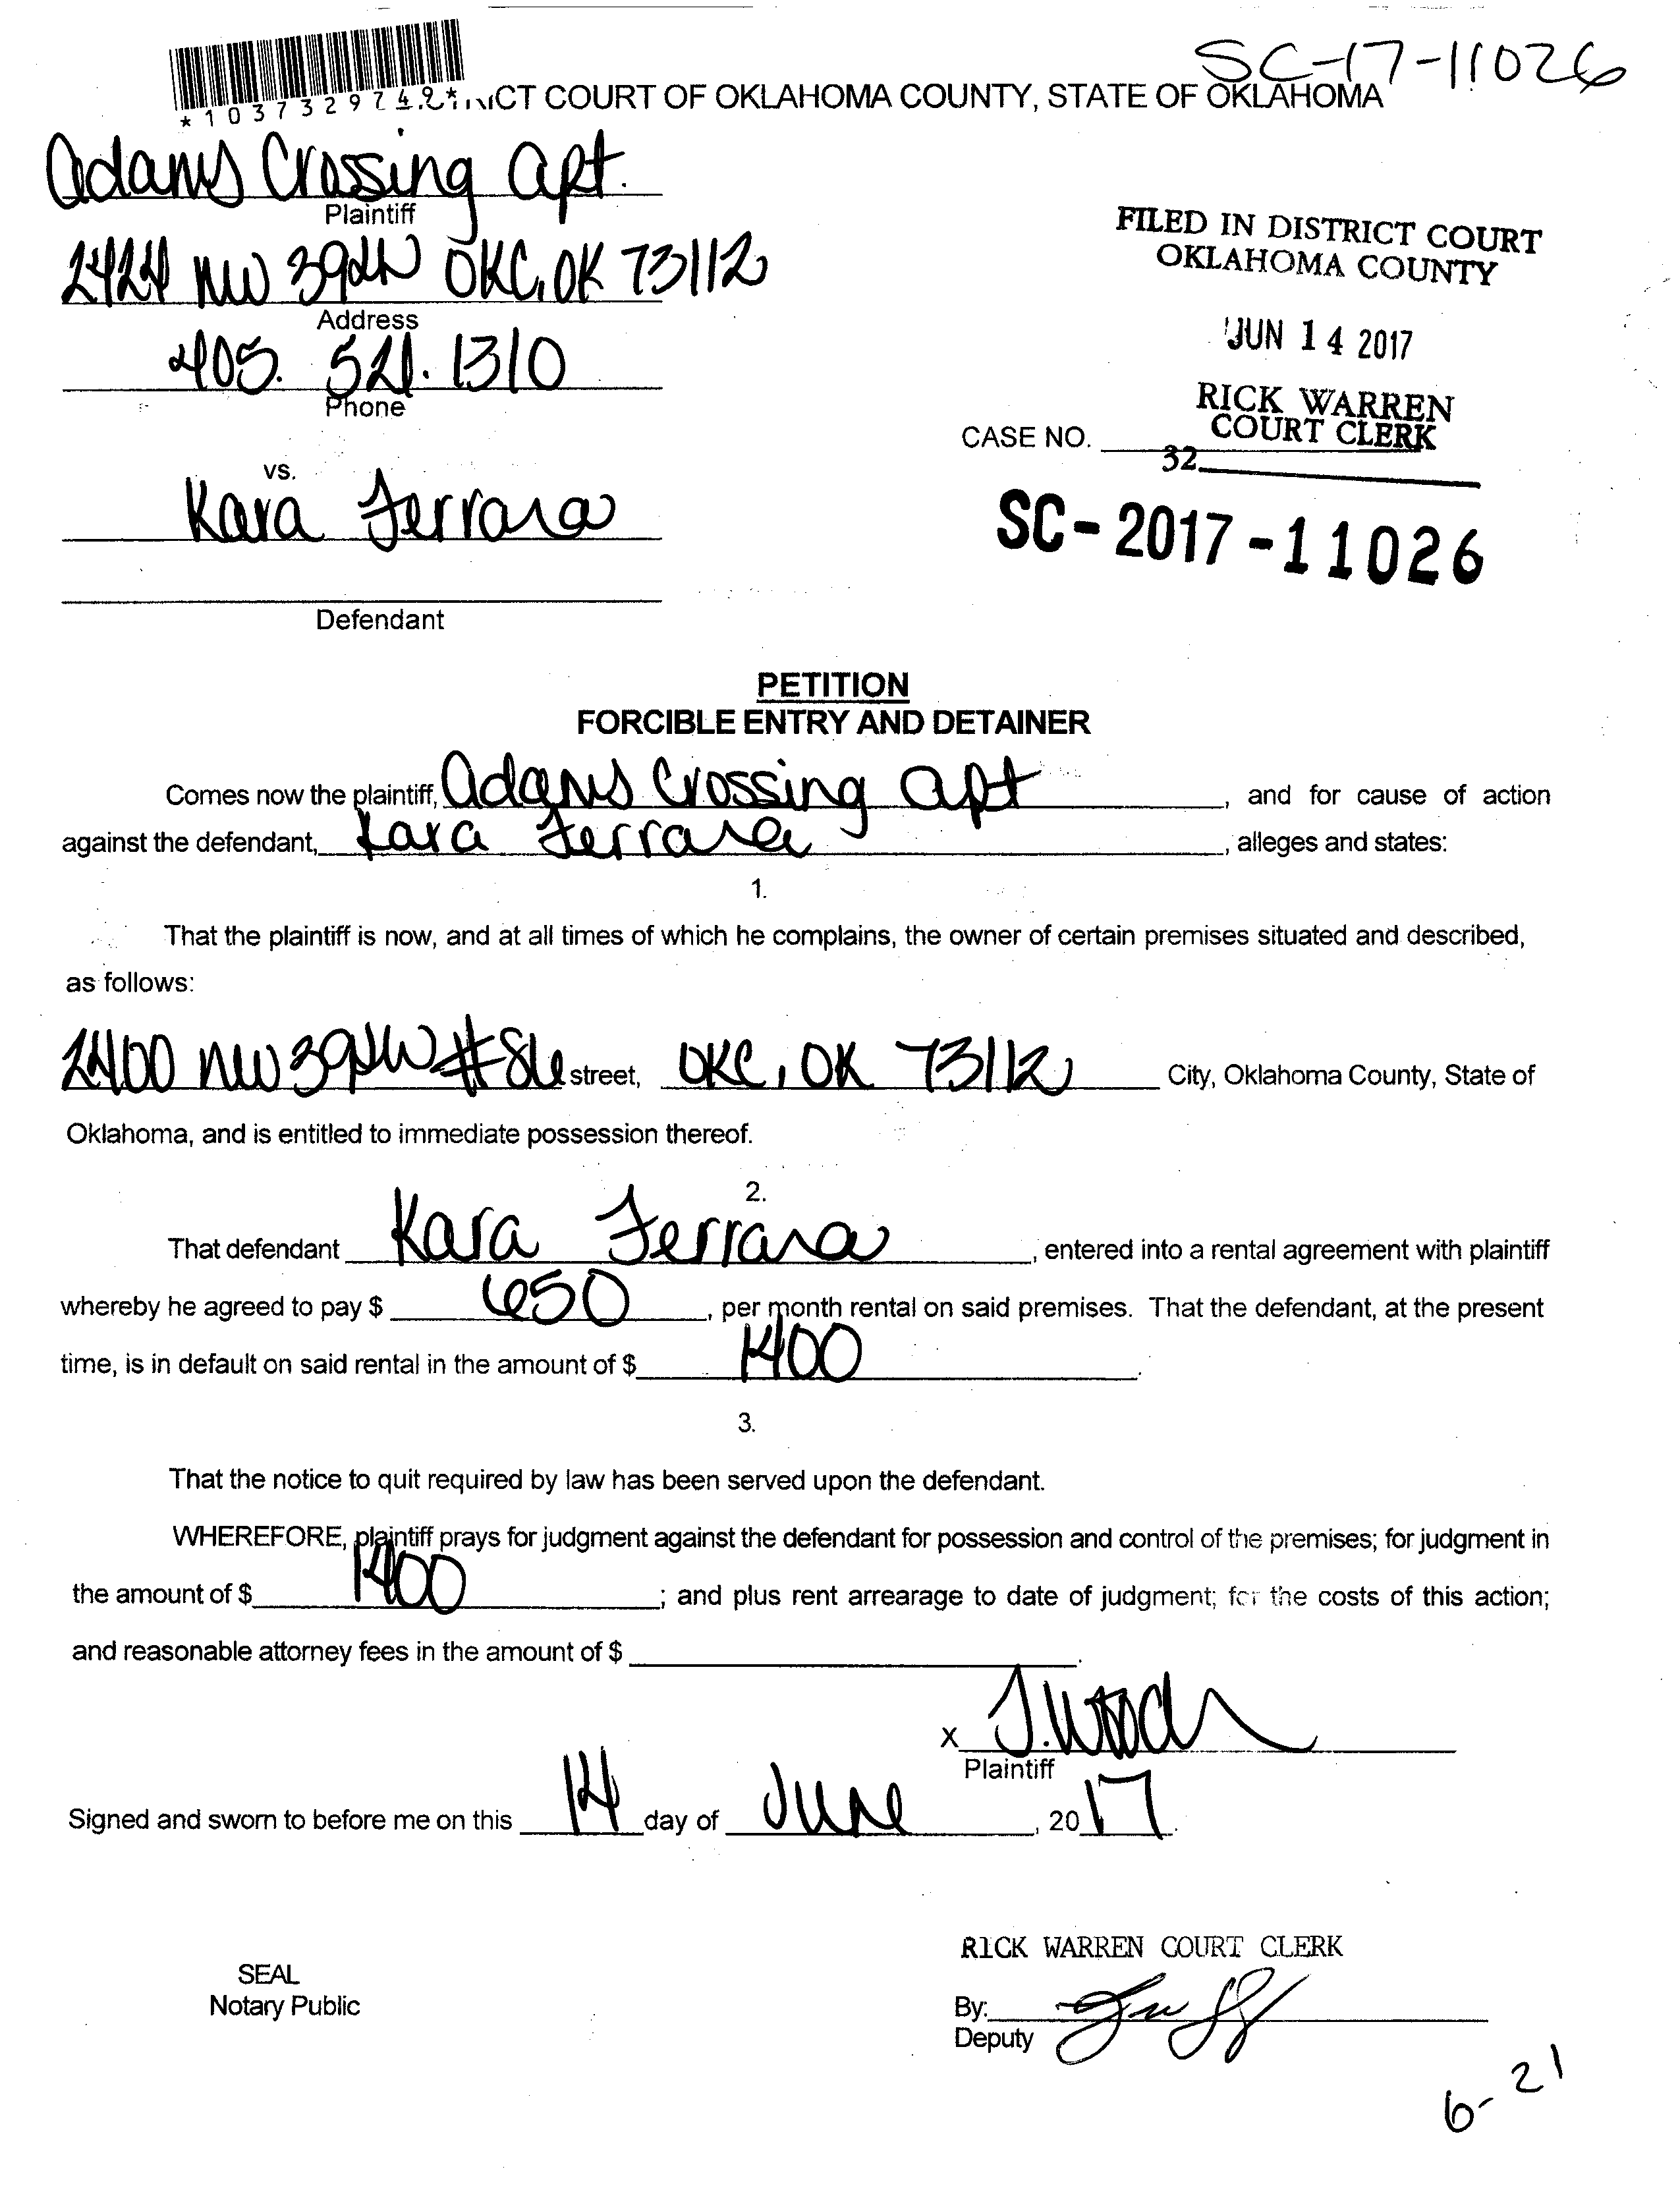 SC-17-11026
*1037329742* CT COURT OF OKLAHOMA COUNTY, STATE OF OKLAHOMA
Adams Crossing Apt.
Plaintiff
2424 NW 39th OKC, OK 73112
Address
405. 521. 1310
Phone
FILED IN DISTRICT COURT
OKLAHOMA COUNTY
JUN 14 2017
RICK WARREN
COURT CLERK
CASE NO.
32
vs.
Kara Ferrara
SC-2017-11026
Defendant
PETITION
FORCIBLE ENTRY AND DETAINER
Comes now the plaintiff, Adams Crossing Apt, and for cause of action
against the defendant, Kara Ferrara, alleges and states:
1.
That the plaintiff is now, and at all times of which he complains, the owner of certain premises situated and described,
as follows:
2400 NW 39th # street, OKC, OK 73112 City, Oklahoma County, State of
Oklahoma, and is entitled to immediate possession thereof.
2.
That defendant Kara Ferrara, entered into a rental agreement with plaintiff
whereby he agreed to pay $ 650, per month rental on said premises. That the defendant, at the present
time, is in default on said rental in the amount of $ 1400.
3.
That the notice to quit required by law has been served upon the defendant.
WHEREFORE, plaintiff prays for judgment against the defendant for possession and control of the premises; for judgment in
the amount of $ 1400; and plus rent arrearage to date of judgment; for the costs of this action;
and reasonable attorney fees in the amount of $.
x J. Woods
Plaintiff
Signed and sworn to before me on this 14 day of June, 2017.
RICK WARREN COURT CLERK
SEAL
Notary Public
By:
Deputy
6-21